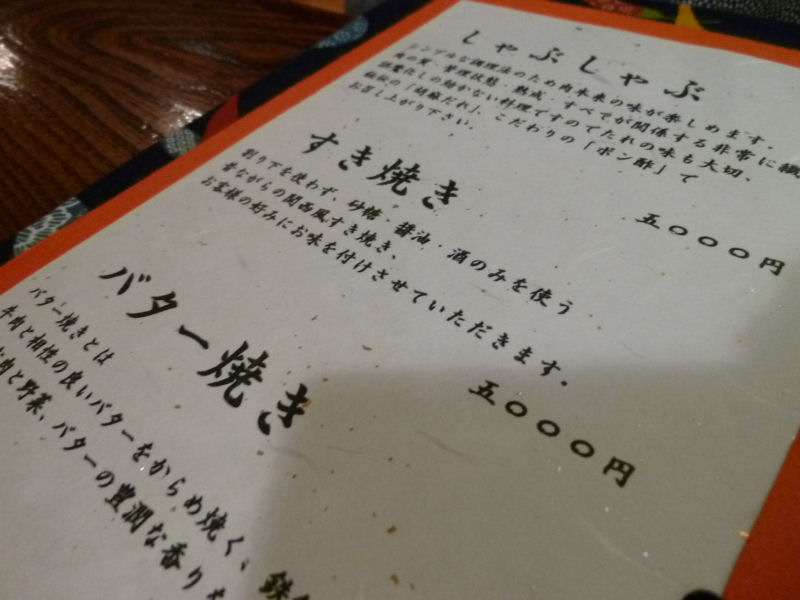 しゃぶしゃぶ
シンプルな調理法のため肉本来の味が楽しめます。
肉の質・管理状態・熟成・すべてが関係する非常に繊
誤魔化しの効かない料理ですのでたれの味も大切、
秘伝の「胡麻だれ」、こだわりの「ポン酢」で
お召し上がり下さい。
五〇〇〇円
すき焼き
割り下を使わず、砂糖・醤油・酒のみを使う
昔ながらの関西風すき焼き、
お客様の好みにお味を付けさせていただきます。
五〇〇〇円
バター焼き
バター焼きとは
牛肉と相性の良いバターをからめ焼く、鉄
肉と野菜、バターの豊潤な香り